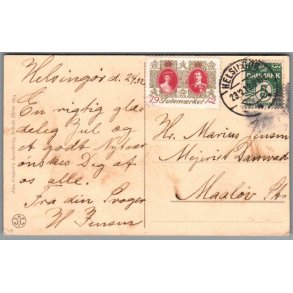 Helsingør d. 24
En rigtig glæ-
delig Jul og
et godt Nytaar
ønskes Dig af
os alle.
Fra din Svoger
H Jensen
19 Julemærket 12
HELSINGØR
DANMARK
5
Hr. Marius Jensen
Mejeriet Damvad
Maaløv St.